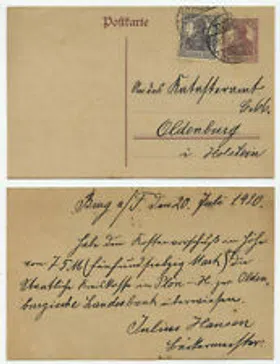 Postkarte
An das Katasteramt
Oldenburg
i Holstein
Burg a/F. den 20. Juli 1920.
Habe den Kostenvorschuß in Höhe
von 75 M (fünfundsiebzig Mark) die
Kreiskasse in Plön zur Olden
burgische Landesbank überwiesen.
Julius Hansen
Bäckermeister.